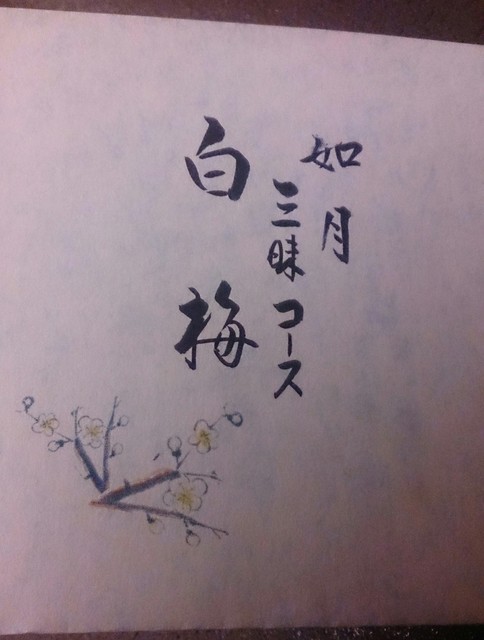 如月
三昧コース
白梅